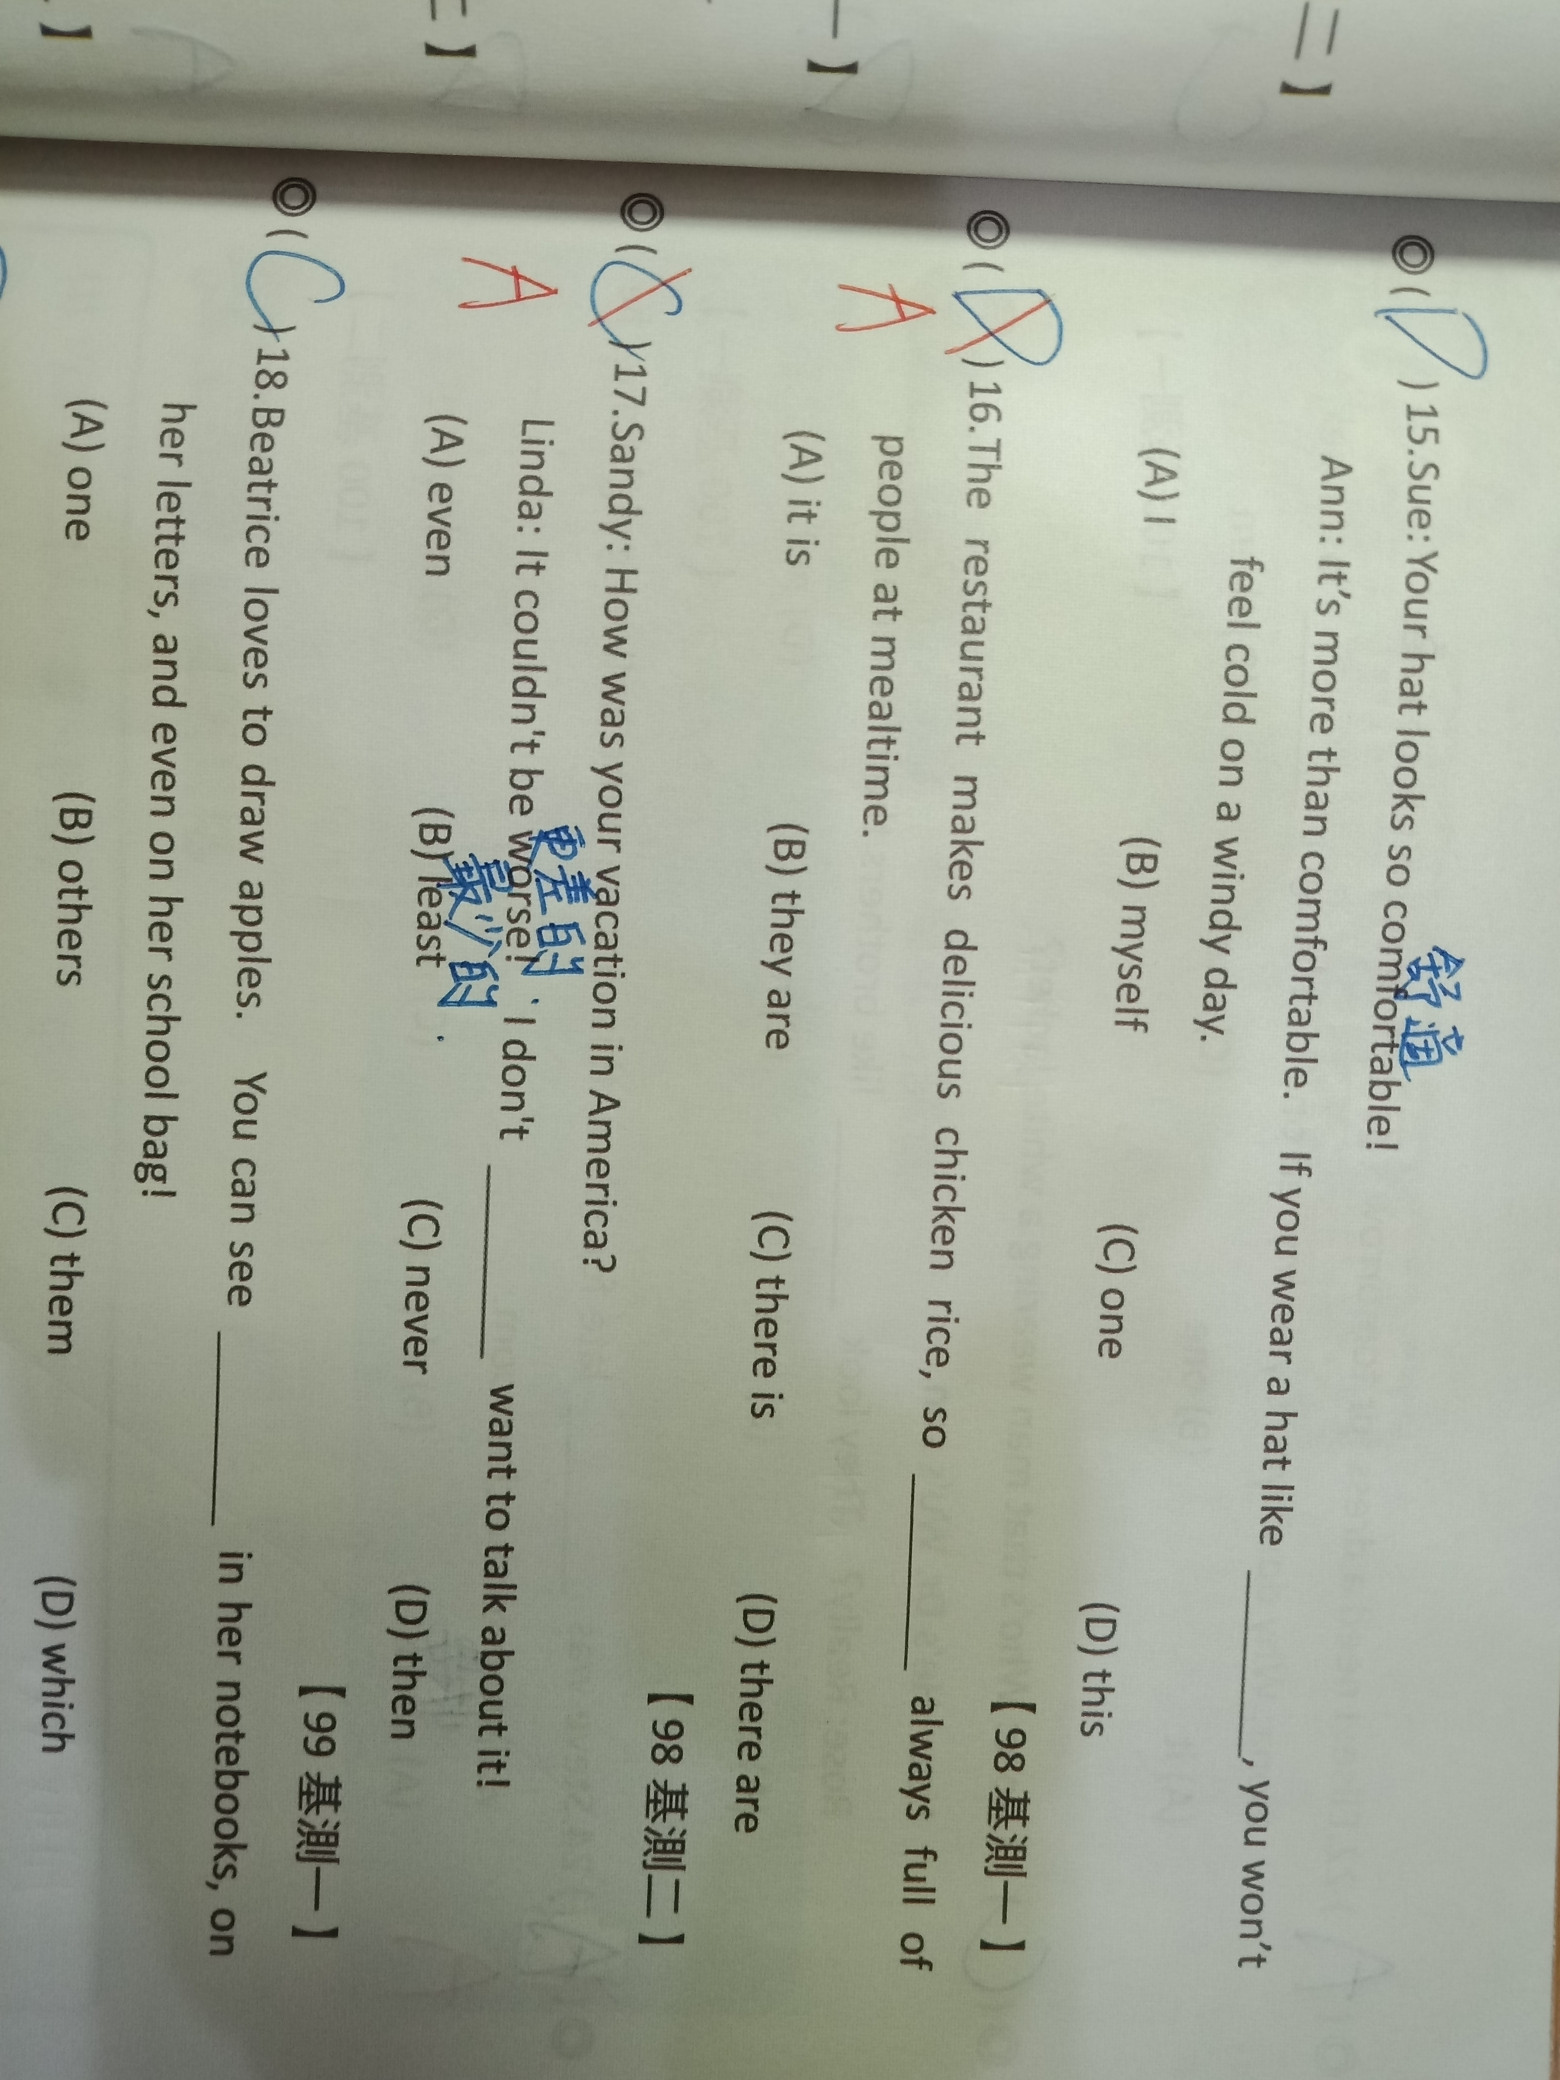 二】
一】
二】
】
◎( D )15.Sue: Your hat looks so comfortable!
舒適
Ann: It's more than comfortable. If you wear a hat like ______, you won't
feel cold on a windy day.
(A) I (B) myself (C) one (D) this
【98 基測一】
◎( D )16.The restaurant makes delicious chicken rice, so ______ always full of
A people at mealtime.
(A) it is (B) they are (C) there is (D) there are
【98 基測二】
◎( C )17.Sandy: How was your vacation in America?
更差的.
A Linda: It couldn't be worse! I don't ______ want to talk about it!
最少的.
(A) even (B) least (C) never (D) then
【99 基測一】
◎( C )18.Beatrice loves to draw apples. You can see ______ in her notebooks, on
her letters, and even on her school bag!
(A) one (B) others (C) them (D) which